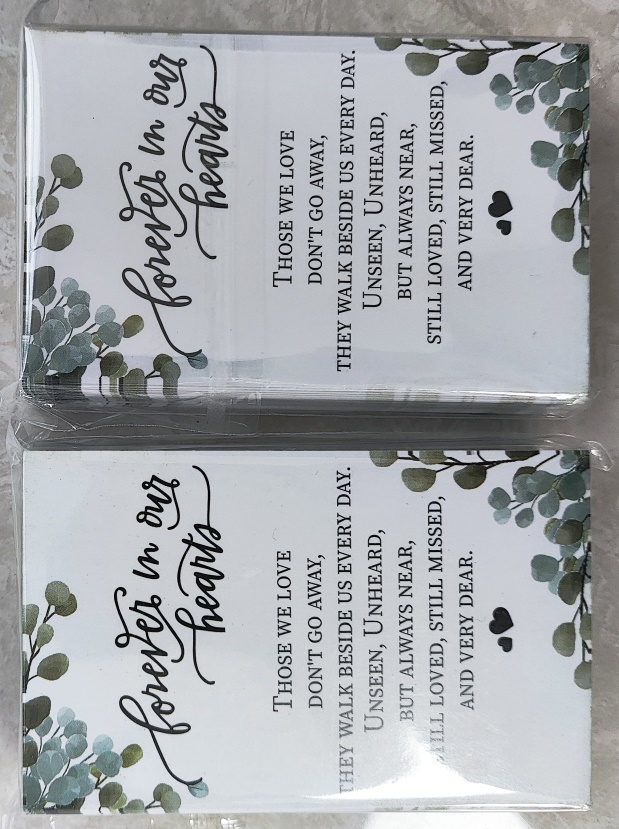 forever in our
hearts
Those we love
don't go away,
they walk beside us every day.
Unseen, Unheard,
but always near,
still loved, still missed,
and very dear.
forever in our
hearts
Those we love
don't go away,
they walk beside us every day.
Unseen, Unheard,
but always near,
still loved, still missed,
and very dear.